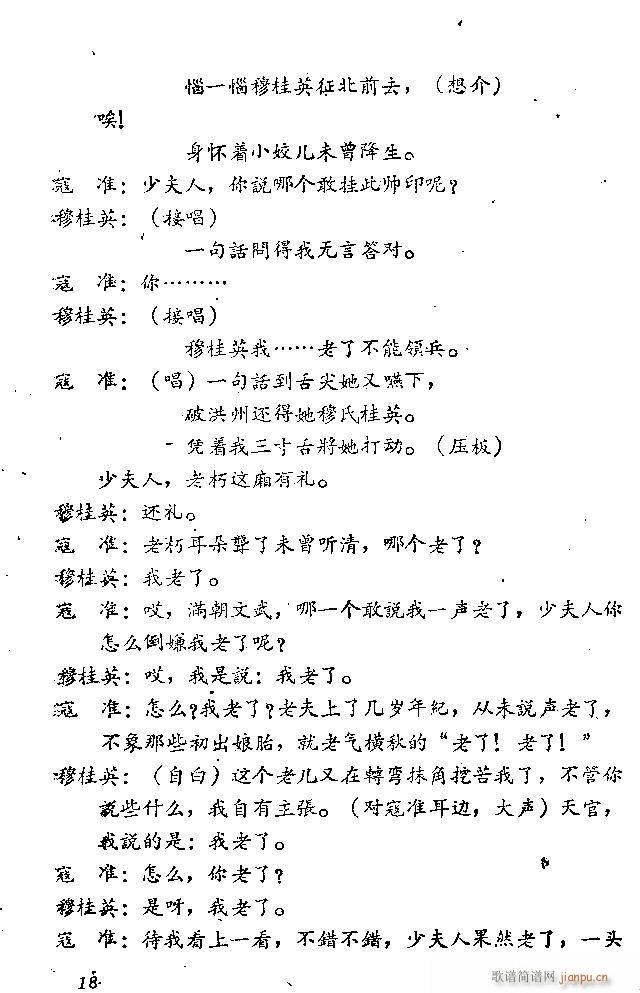 惱一惱穆桂英征北前去，（想介）
唉！
身怀着小姣儿未曾降生。
寇　准：少夫人，你說哪个敢挂此帅印呢？
穆桂英：（接唱）
一句話問得我无言答对。
寇　准：你………
穆桂英：（接唱）
穆桂英我……老了不能領兵。
寇　准：（唱）一句話到舌尖她又嚥下，
破洪州还得她穆氏桂英。
凭着我三寸舌將她打动。（压板）
少夫人，老朽这廂有礼。
穆桂英：还礼。
寇　准：老朽耳朵聾了未曾听清，哪个老了？
穆桂英：我老了。
寇　准：哎，滿朝文武，哪一个敢說我一声老了，少夫人你
怎么倒嫌我老了呢？
穆桂英：哎，我是說：我老了。
寇　准：怎么？我老了？老夫上了几岁年紀，从未說声老了，
不象那些初出娘胎，就老气橫秋的“老了！老了！”
穆桂英：（自白）这个老儿又在轉弯抹角挖苦我了，不管你
說些什么，我自有主張。（对寇准耳边，大声）天官，
我說的是：我老了。
寇　准：怎么，你老了？
穆桂英：是呀，我老了。
寇　准：待我看上一看，不錯不錯，少夫人果然老了，一头
18
歌谱简谱网
jianpu.cn